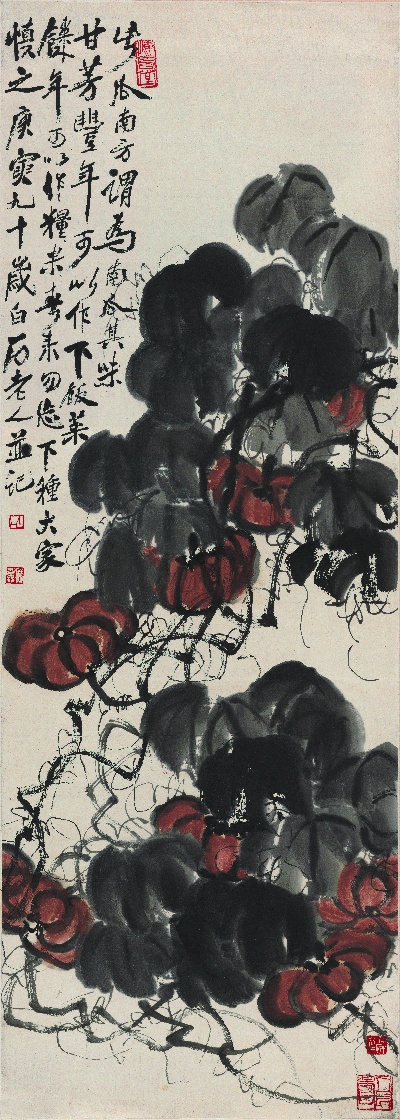 此瓜南方谓為南瓜其味
甘芳豐年可以作下飯菜
饑年可以作糧米春來勿忘下種大家
慎之庚寅九十歲白石老人並記